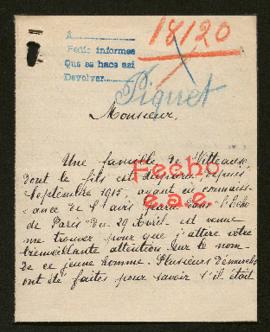 A
Pedir informes
Que se hace así
Devolver
18120
Piquet
Monsieur,
Une famille de Vitteaux
dont le fils est disparu depuis
Septembre 1915, ayant eu connais-
sance de l'avis paru dans l'Echo
de Paris du 29 Avril est venue
me trouver pour que j'attire votre
bienveillante attention sur le nom
de ce jeune homme. Plusieurs démarches
ont été faites pour savoir s'il était
Fecho
e.a.e.